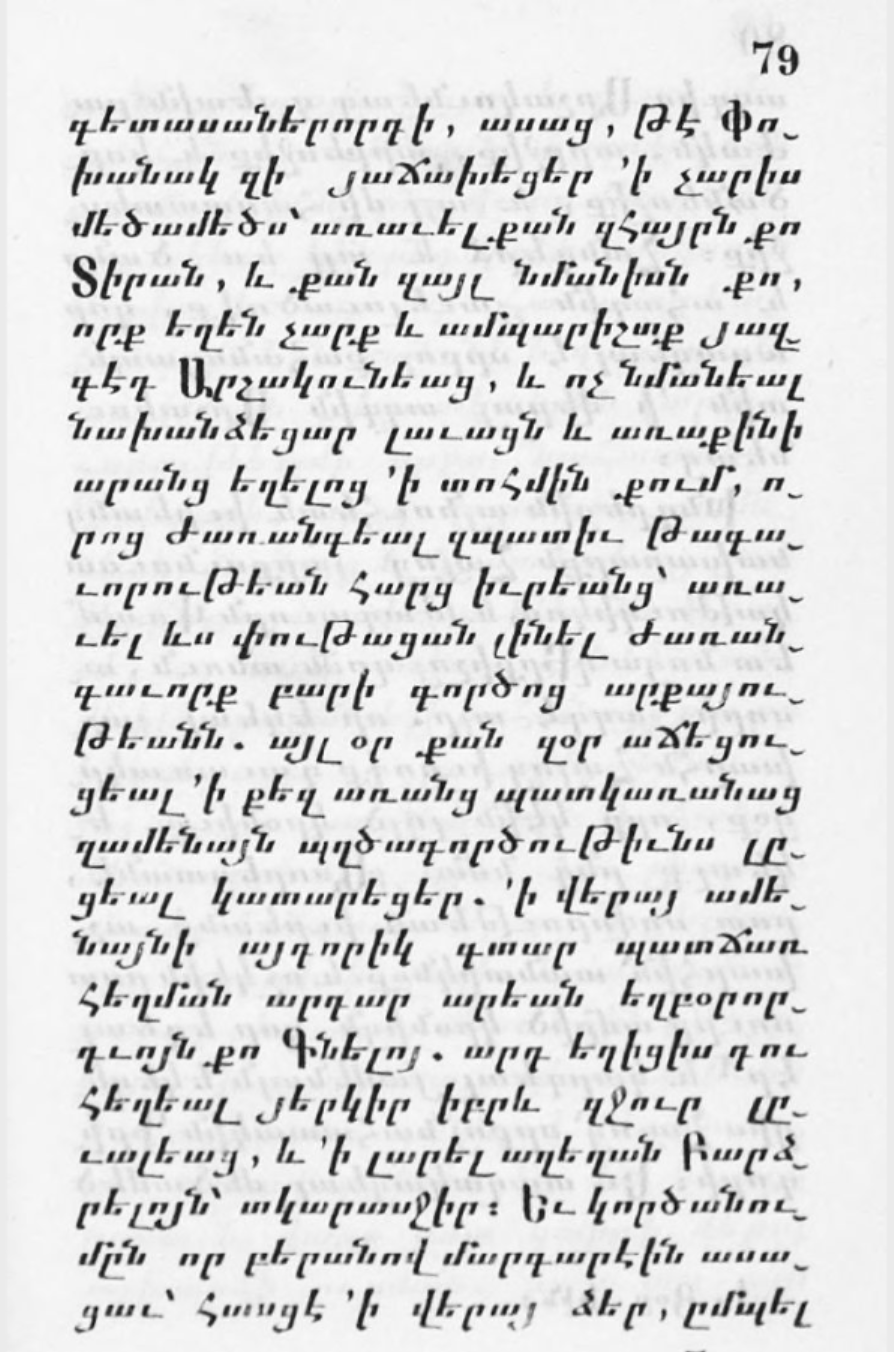 79
գետասաններորդի, ասաց, թէ Փո֊
խանակ զի յաճախեցեր ՚ի չարիս
մեծամեծս՝ առաւել քան զՀայրն քո
Տիրան, և քան զայլ նմանին քո,
որք եղեն չարք և ամպարիշտք յազ֊
գէդ Արշակունեաց, և ոչ նմանեալ
նախանձեցար լաւացն և առաքինի
արանց եղելոց ՚ի տոհմին քում, ո֊
րոց ժառանգեալ զպատիւ թագա֊
ւորութեան Հարց իւրեանց՝ առա֊
ւել ևս փութացան լինել ժառան֊
գաւորք բարի գործոց արքայու֊
թեանն. այլ օր քան զօր աճեցու֊
ցեալ ՚ի քեզ առանց պատկառանաց
զամենայն պղծագործութիւնս լը֊
ցեալ կատարեցեր. ՚ի վերայ ամե֊
նայնի այդորիկ գտար պատճառ
հեղման արդար արեան եղբօրոր֊
դւոյն քո Գնելոյ. արդ եղիցիս դու
հեղեալ յերկիր իբրև զջուր լը֊
ւալեաց, և ՚ի լարել աղեղան Բարձ֊
րելոյն՝ տկարասջիր։ Եւ կործանու֊
մըն որ բերանով մարգարէին ասա֊
ցաւ՝ հասցէ ՚ի վերայ ձեր, ըմպել